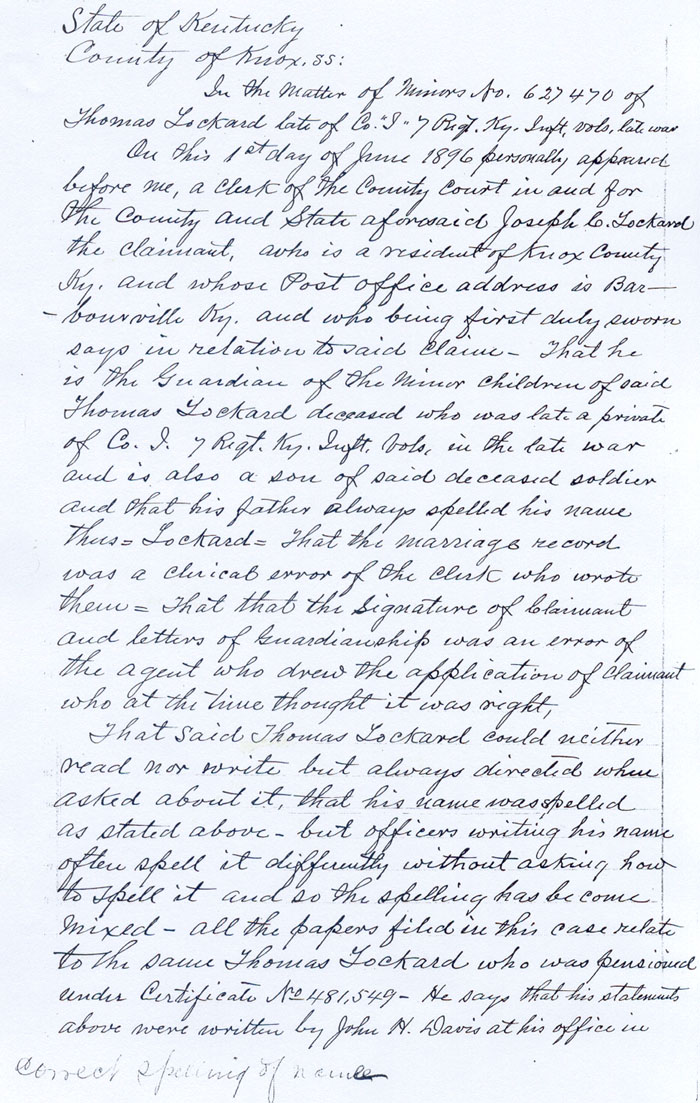 State of Kentucky
County of Knox. ss:
In the Matter of Minors No. 627470 of
Thomas Lockard late of Co. "I" 7 Regt. Ky. Inft. vols, late war
On this 1st day of June 1896 personally appeared
before me, a clerk of the County court in and for
the County and State aforesaid Joseph C. Lockard
the claimant, who is a resident of Knox County
Ky. and whose Post office address is Bar-
-bourville Ky. and who being first duly sworn
says in relation to said Claim - That he
is the Guardian of the Minor children of said
Thomas Lockard deceased who was late a private
of Co. I. 7 Regt. Ky. Inft. Vols, in the late war
and is also a son of said deceased soldier
and that his father always spelled his name
thus = Lockard = That the marriage record
was a clerical error of the Clerk who wrote
them = That that the Signature of Claimant
and letters of Guardianship was an error of
the agent who drew the application of Claimant
who at the time thought it was right,
That said Thomas Lockard could neither
read nor write but always directed when
asked about it, that his name was spelled
as stated above - but officers writing his name
often spell it differently without asking how
to spell it and so the spelling has become
mixed - all the papers filed in this case relate
to the same Thomas Lockard who was pensioned
under Certificate No 481,549 - He says that his statements
above were written by John H. Davis at his office in
Correct spelling of name